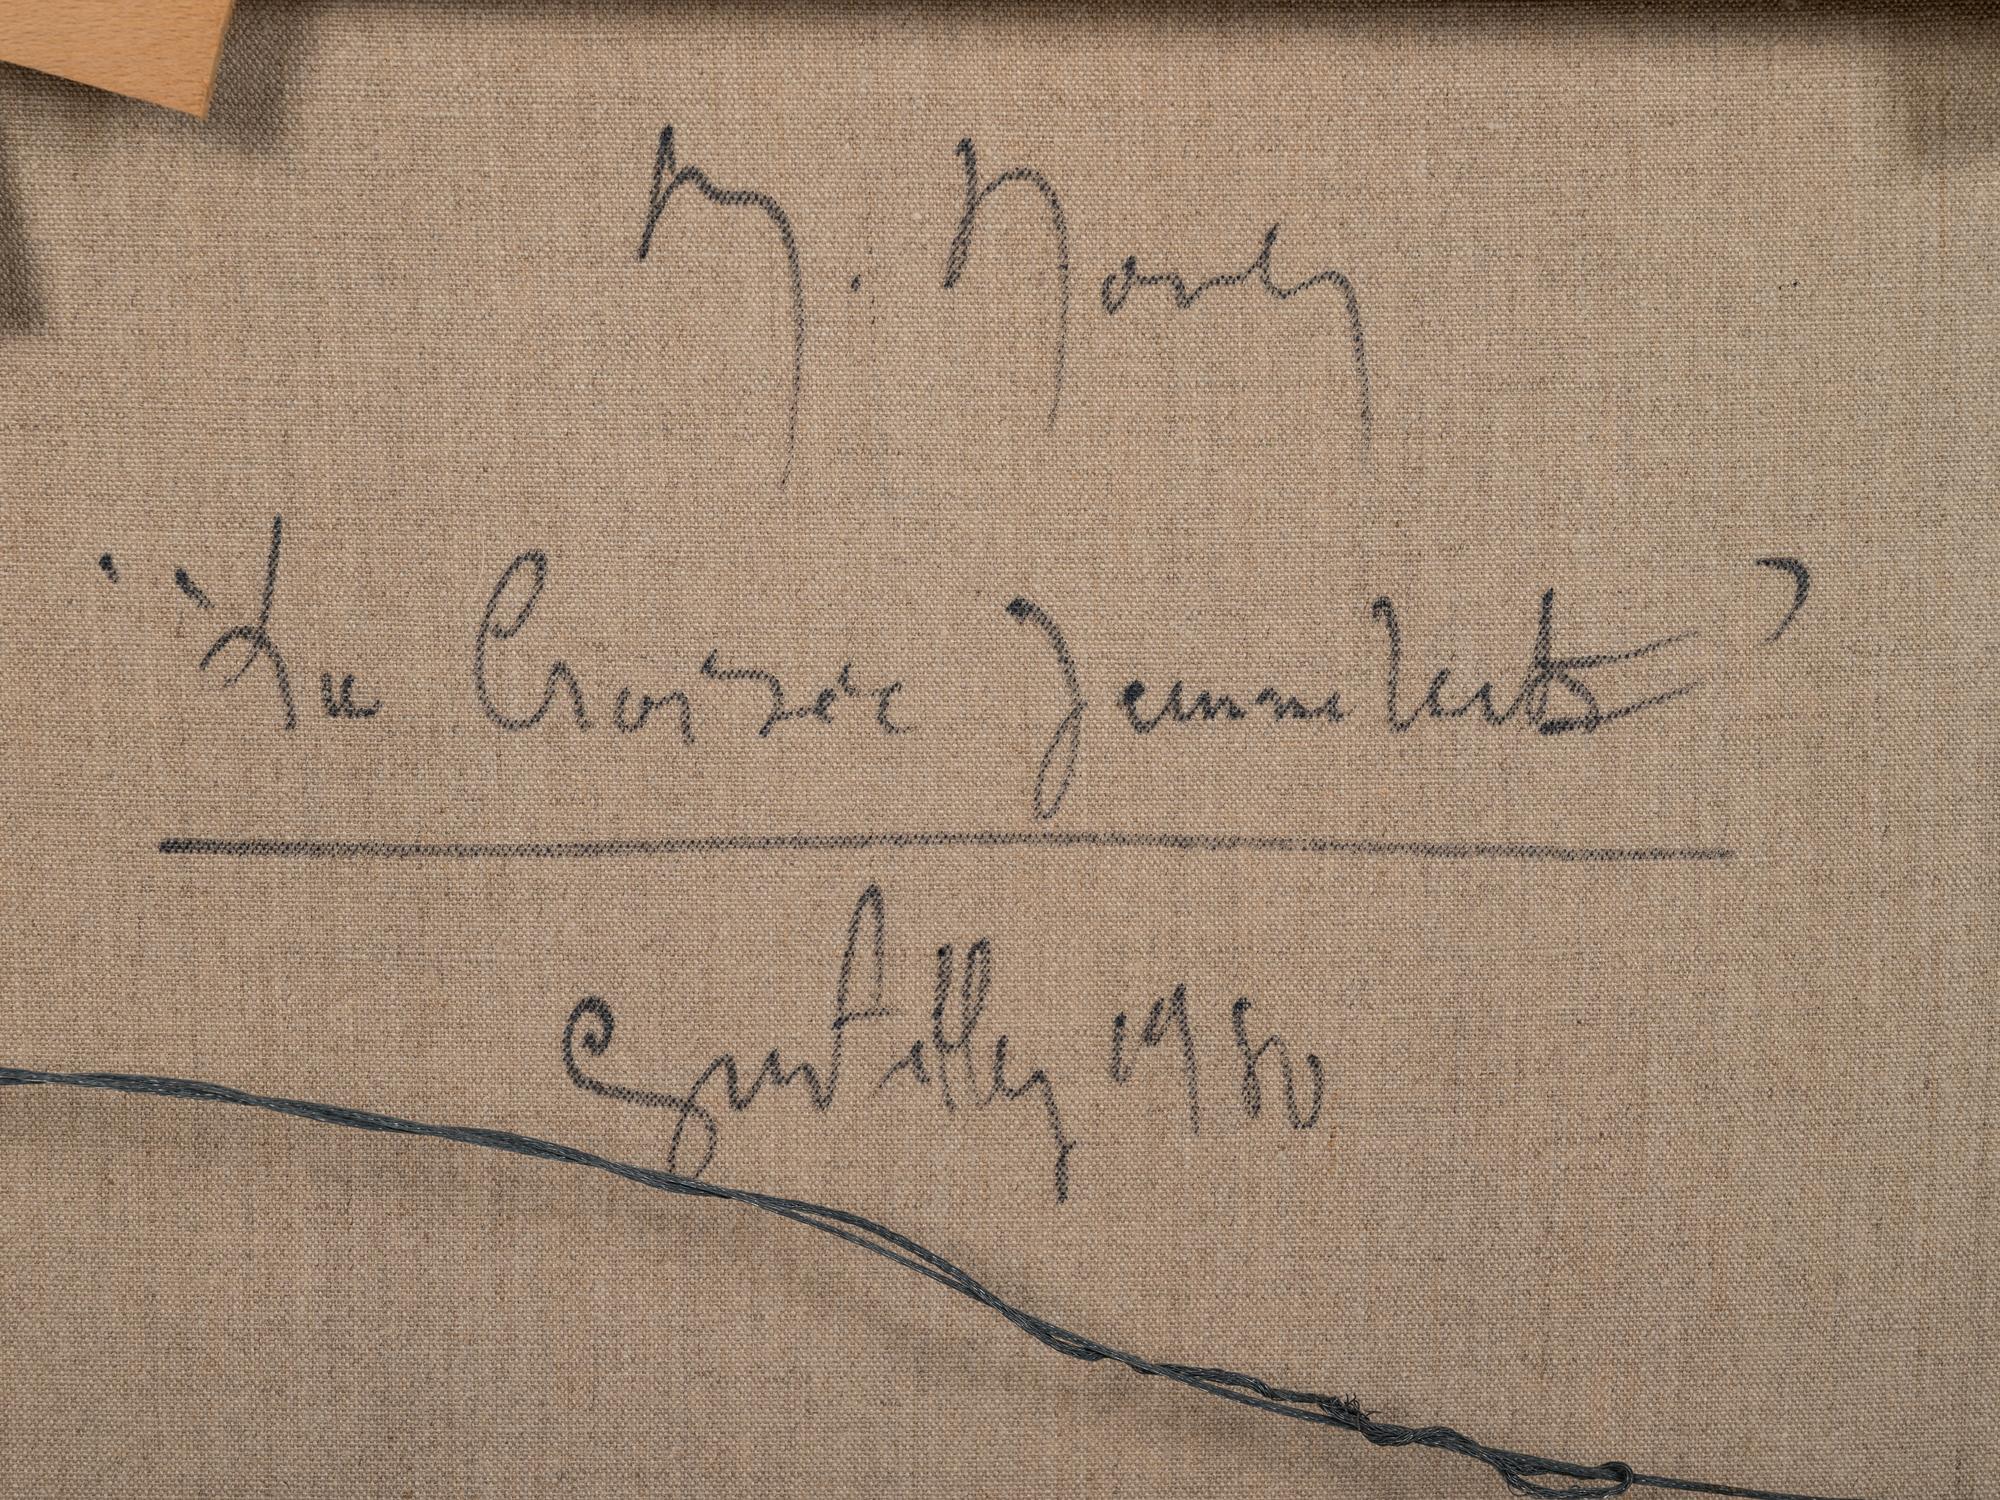 M. Mouly
"La Croisée Jaune Verte"
Gentilly 1980